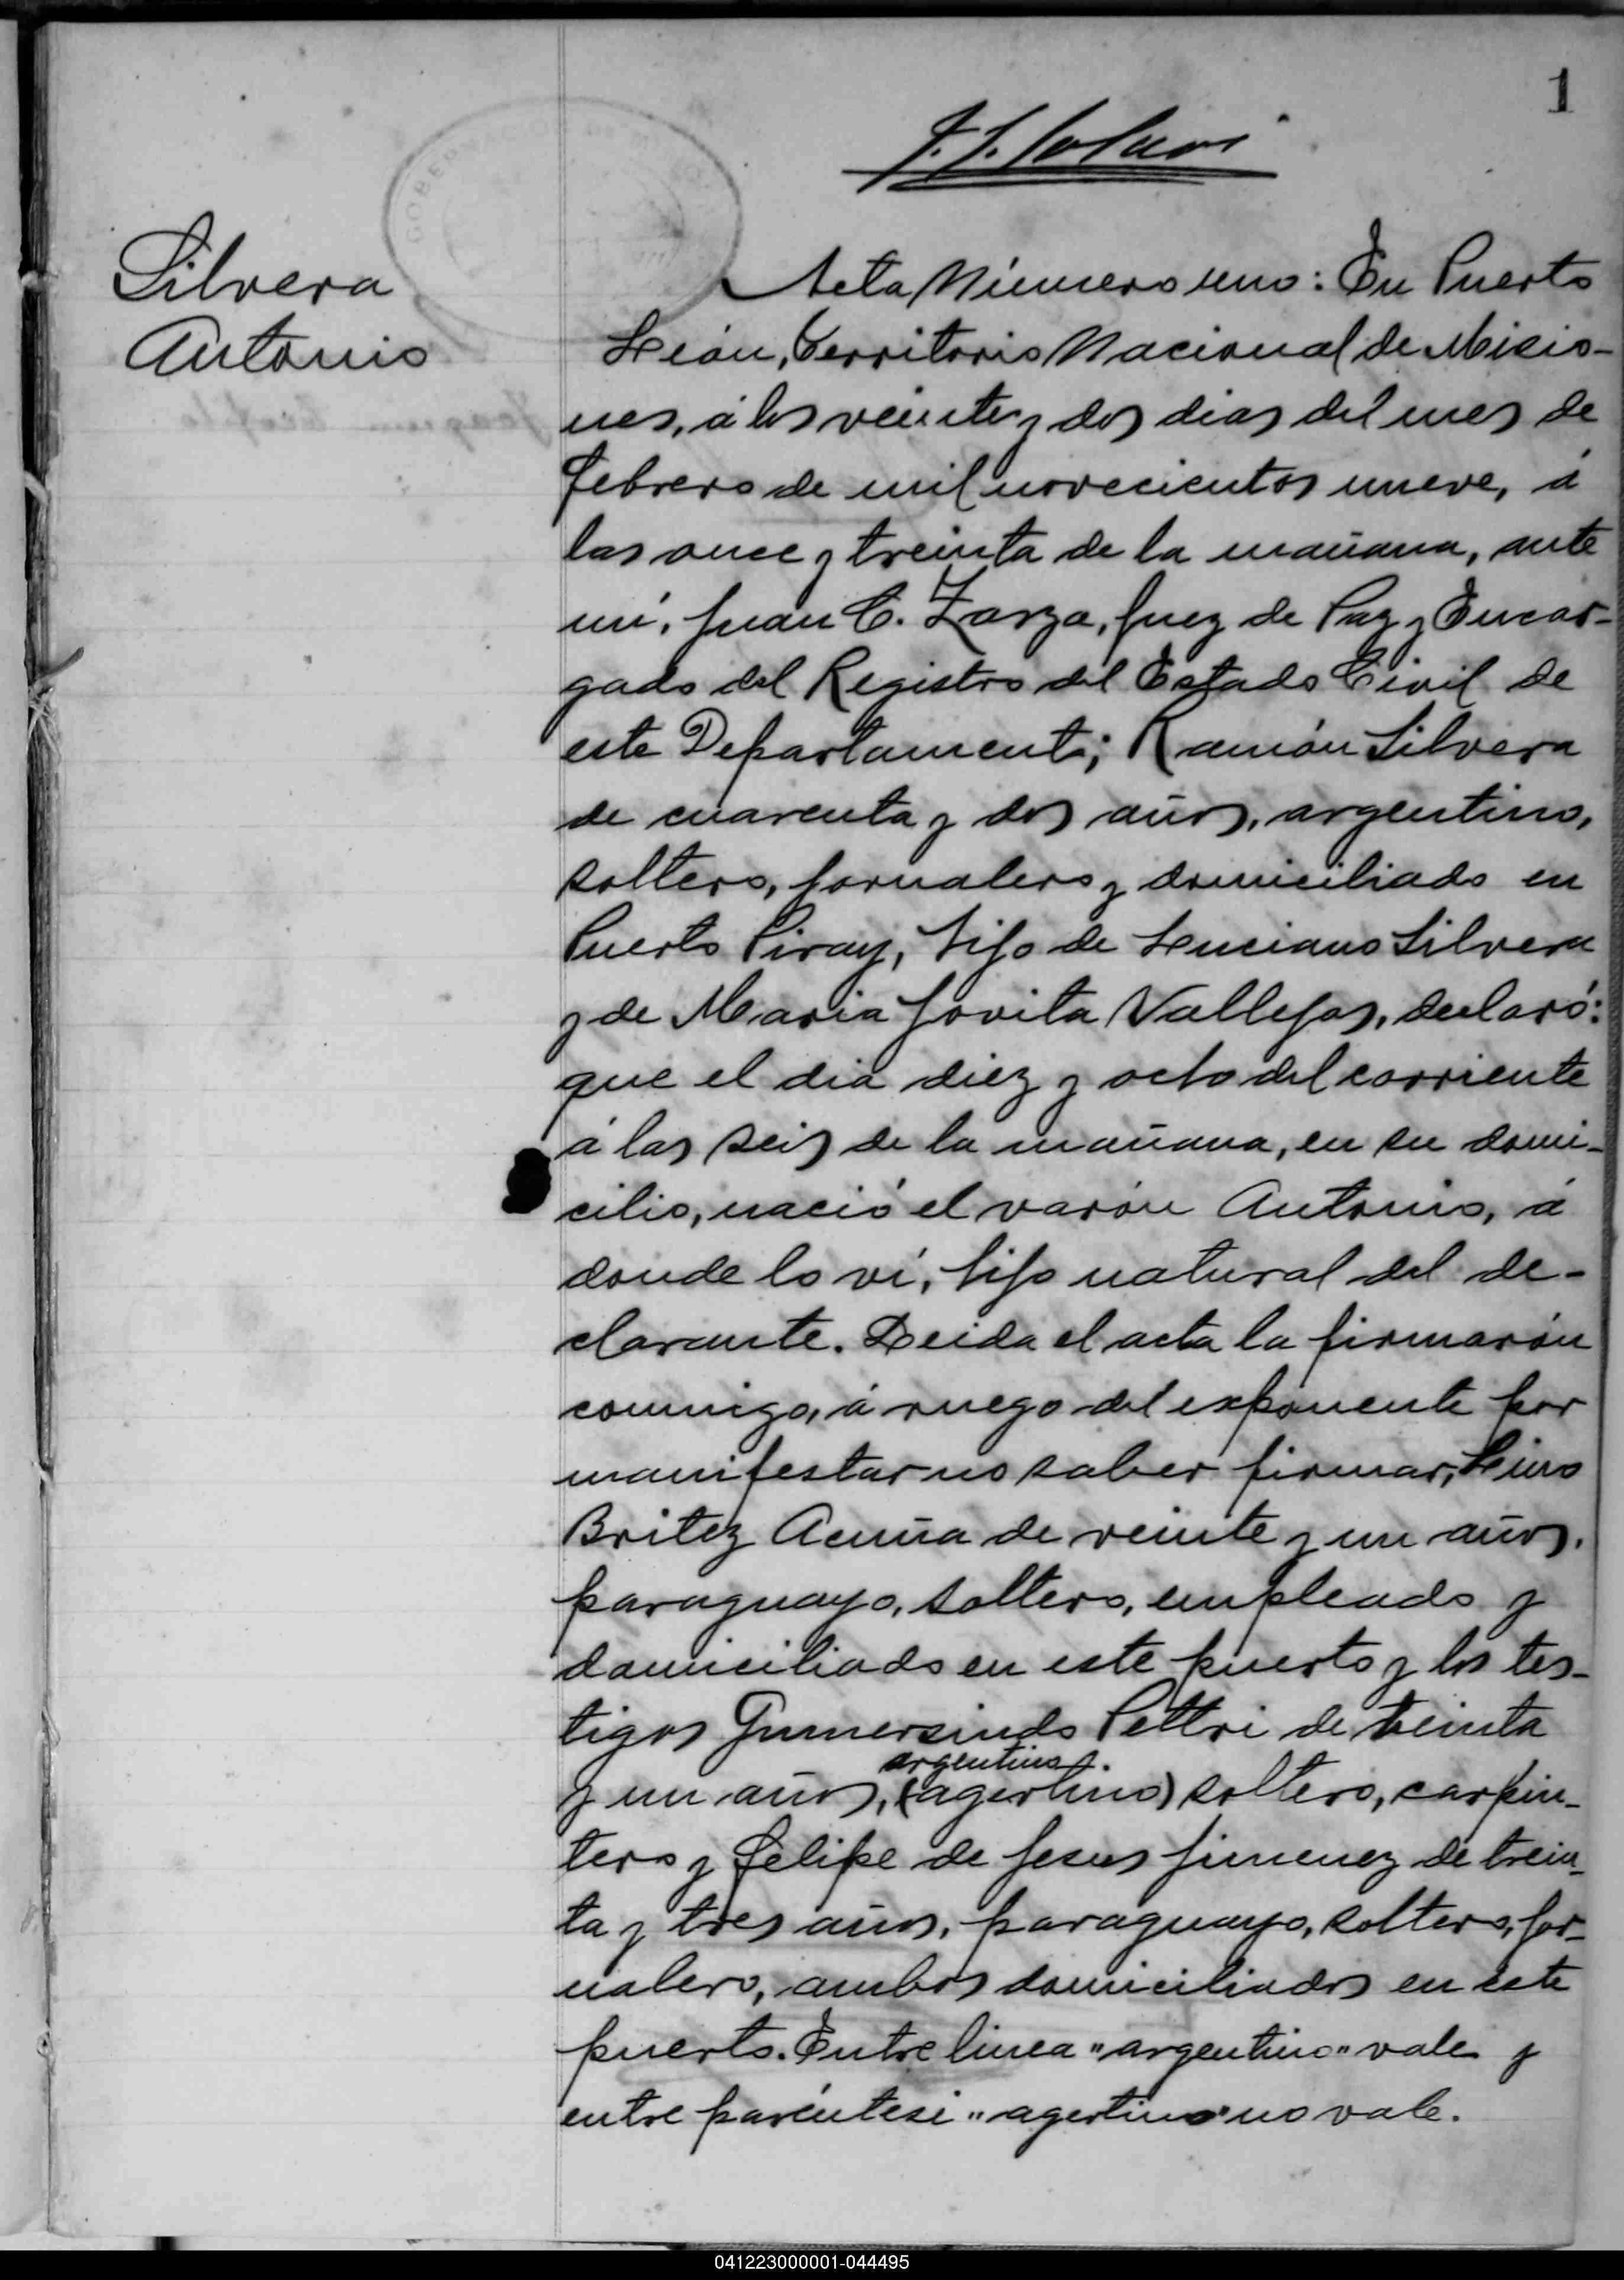 1
Silvera
Antonio
Acta Número uno: En Puerto
León, Territorio Nacional de Misio-
nes, á los veinte y dos dias del mes de
febrero de mil novecientos nueve, á
las once y treinta de la mañana, ante
mí, Juan C. Zarza, Juez de Paz y Encar-
gado del Registro del Estado Civil de
este Departamento; Ramón Silvera
de cuarenta y dos años, argentino,
soltero, jornalero y domiciliado en
Puerto Piray, hijo de Luciano Silvera
y de Maria Jovita Vallejos, declaró:
que el dia diez y ocho del corriente
á las seis de la mañana, en su domi-
cilio, nació el varón Antonio, á
donde lo ví, hijo natural del de-
clarante. Leida el acta la firmarón
conmigo, á ruego del exponente por
manifestar no saber firmar, Lino
Britez Acuña de veinte y un años,
paraguayo, soltero, empleado y
domiciliado en este puerto y los tes-
tigos Gumersindo Pettri de treinta
argentino
y un años, (agertino) soltero, carpin-
tero y Felipe de Jesus Jimenez de trein-
ta y tres años, paraguayo, soltero, jor-
nalero, ambos domiciliados en este
puerto. Entre linea "argentino" vale y
entre paréntesi "agertino" no vale.
041223000001-044495